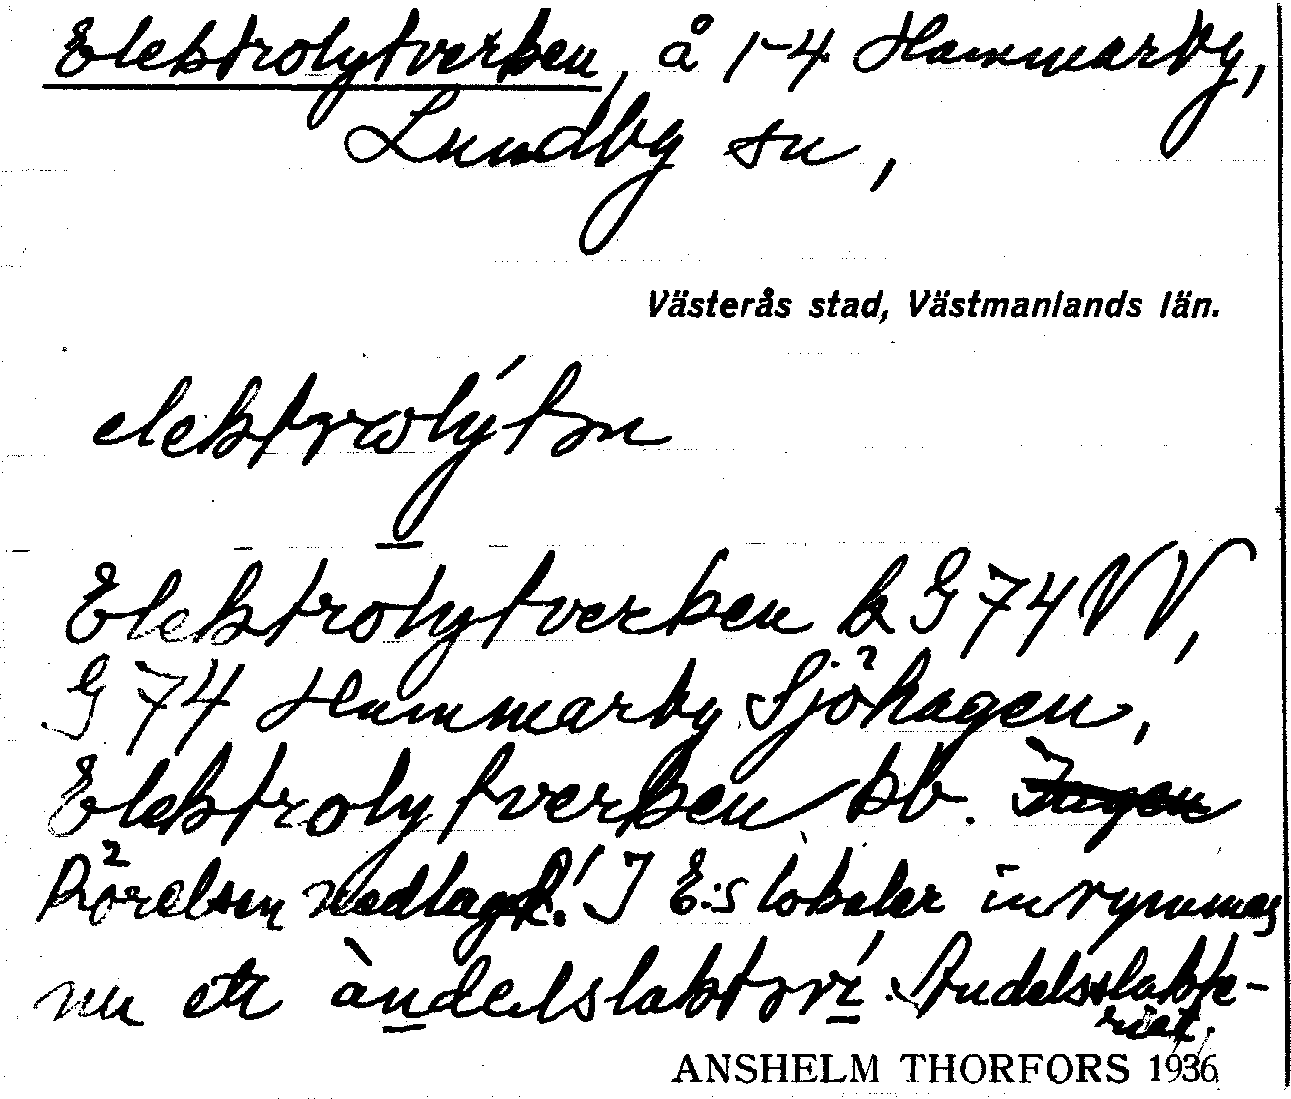 Elektrolytverken, å 1-4 Hammarby,
Lundby sn,
Västerås stad, Västmanlands län.
elektrolýtən
Elektrolytverken k G 74 VV,
G 74 Hammarby Sjöhagen,
Elektrolytverken kb.
Rörelsen nedlagd! I E:s lokaler inrymmes
nu ett àndelslaktəri. Andelsslakte-
riet.
ANSHELM THORFORS 1936